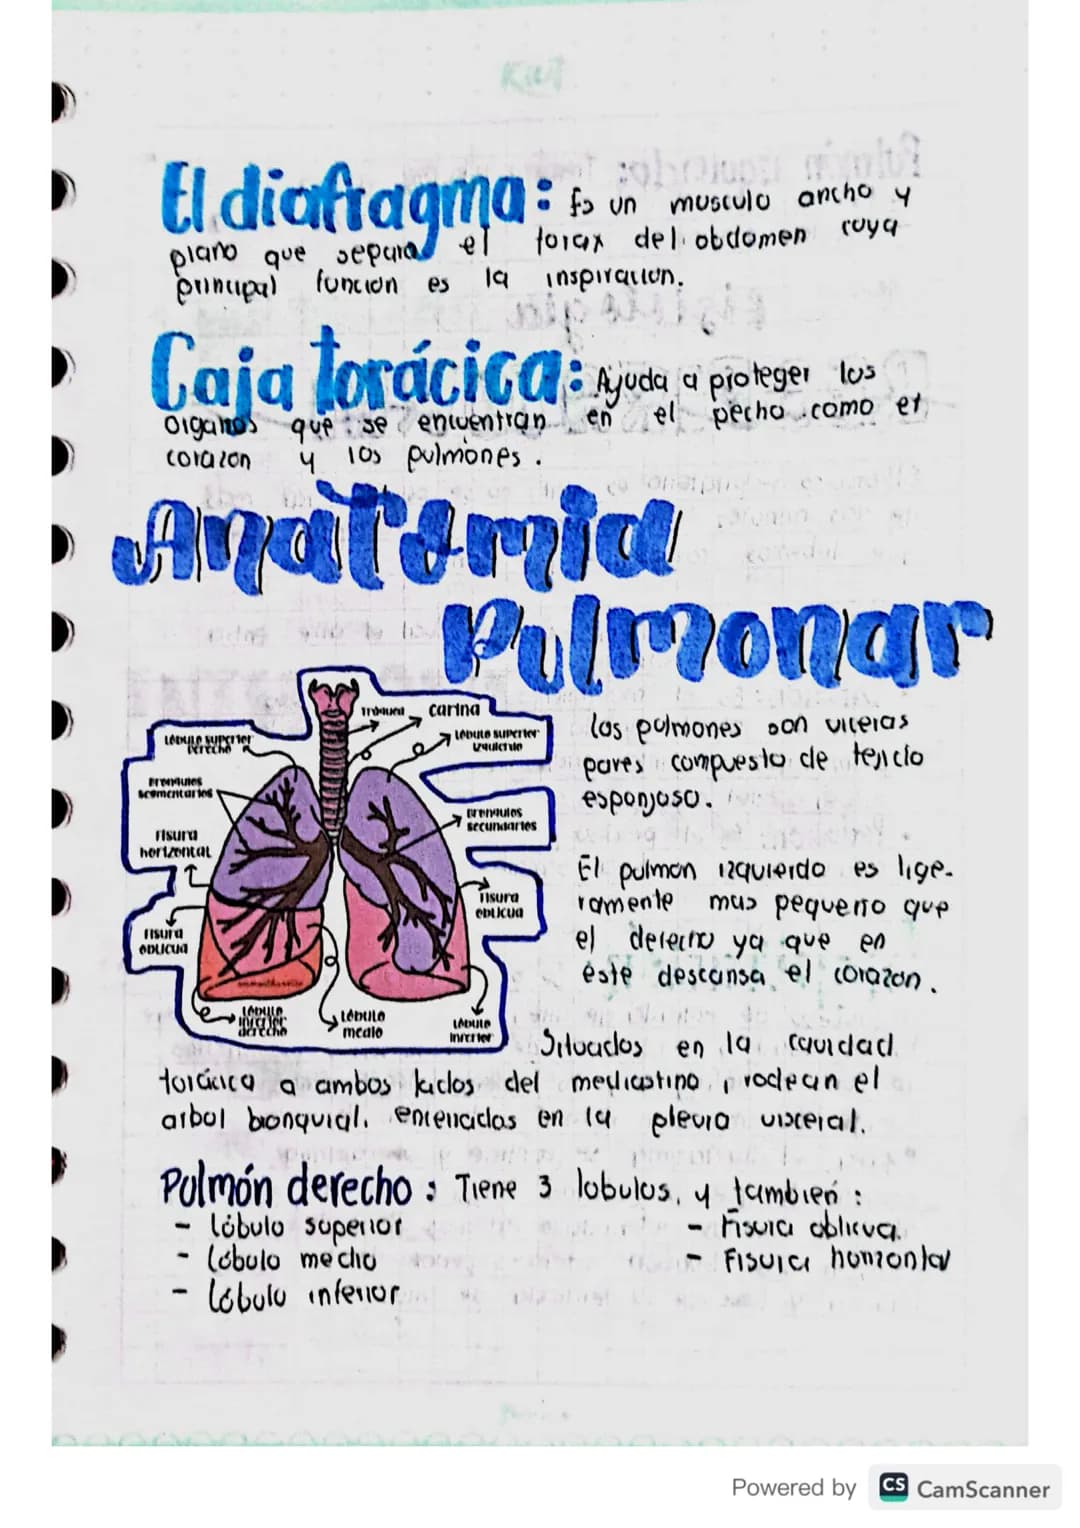 El diafragma: Es un musculo ancho y
plano que separa el torax del obdomen cuya
principal funcion es la inspiracion.
Caja torácica: Ayuda a proteger los
organos que se encuentran en el pecho como el
corazon y los pulmones.
Anatomia
Pulmonar
Tráquea
carina
Lóbulo superior
derecho
Lóbulo superior
izquierdo
Bronquios
segmentarios
Bronquios
secundarios
Fisura
horizontal
Fisura
oblicua
Fisura
oblicua
Lóbulo
inferior
derecho
Lóbulo
medio
Lóbulo
inferior
los pulmones son viceras
pares compuesto de tejido
esponjoso.
El pulmon izquierdo es lige-
ramente mas pequeño que
el derecho ya que en
este descansa el corazon.
Situados en la cavidad
torácica a ambos lados del mediastino, rodean el
arbol bronquial. encerrados en la pleura visceral.
Pulmón derecho: Tiene 3 lobulos, y tambien:
- Lóbulo superior
- Lóbulo medio
- Lóbulo inferior
- Fisura oblicua.
- Fisura horizontal
Powered by CS CamScanner